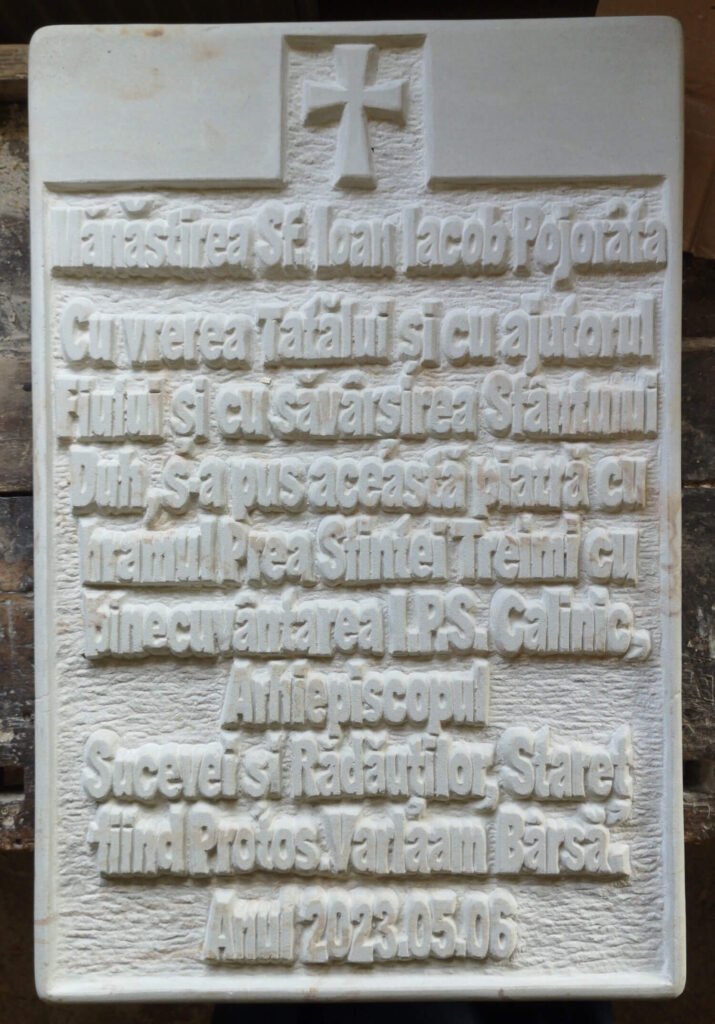 Mănăstirea Sf. Ioan Iacob Pojorâta
Cu vrerea Tatălui și cu ajutorul
Fiului și cu săvârșirea Sfântului
Duh, s-a pus această piatră cu
hramul Prea Sfintei Treimi cu
binecuvântarea I.P.S. Calinic,
Arhiepiscopul
Sucevei și Rădăuților, Stareț
fiind Protos. Varlaam Bârsă.
Anul 2023.05.06